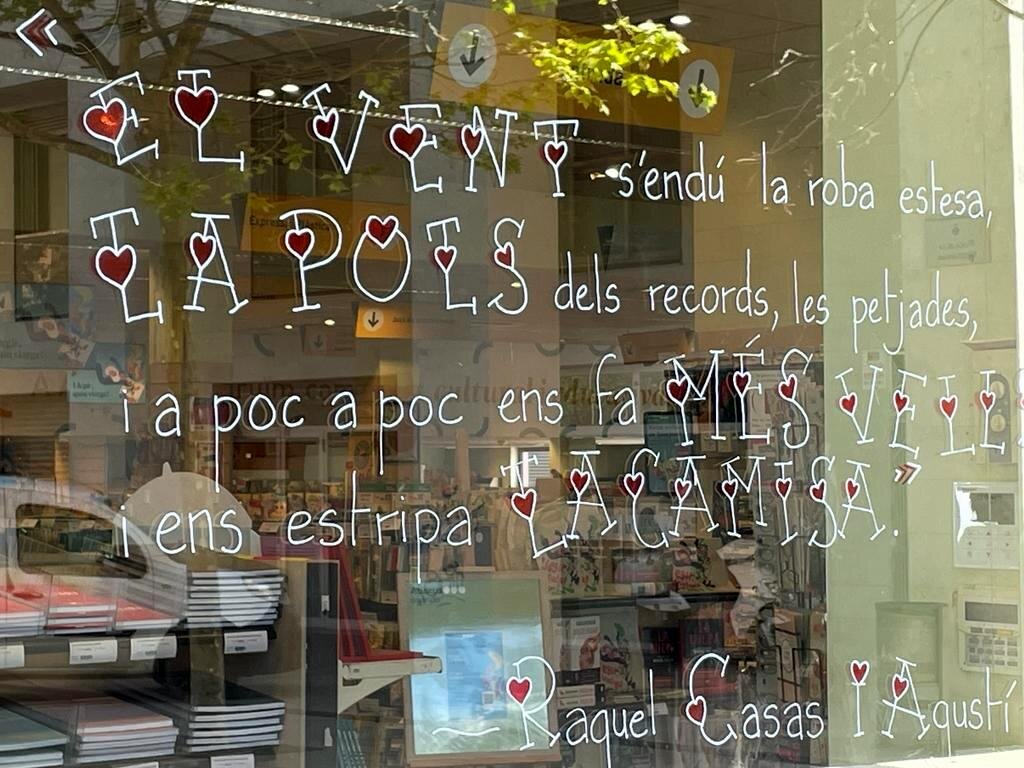 « EL VENT s'endú la roba estesa,
LA POLS dels records, les petjades,
i a poc a poc ens fa MÉS VELLS
i ens estripa LA CAMISA.»
Raquel Casas i Agustí